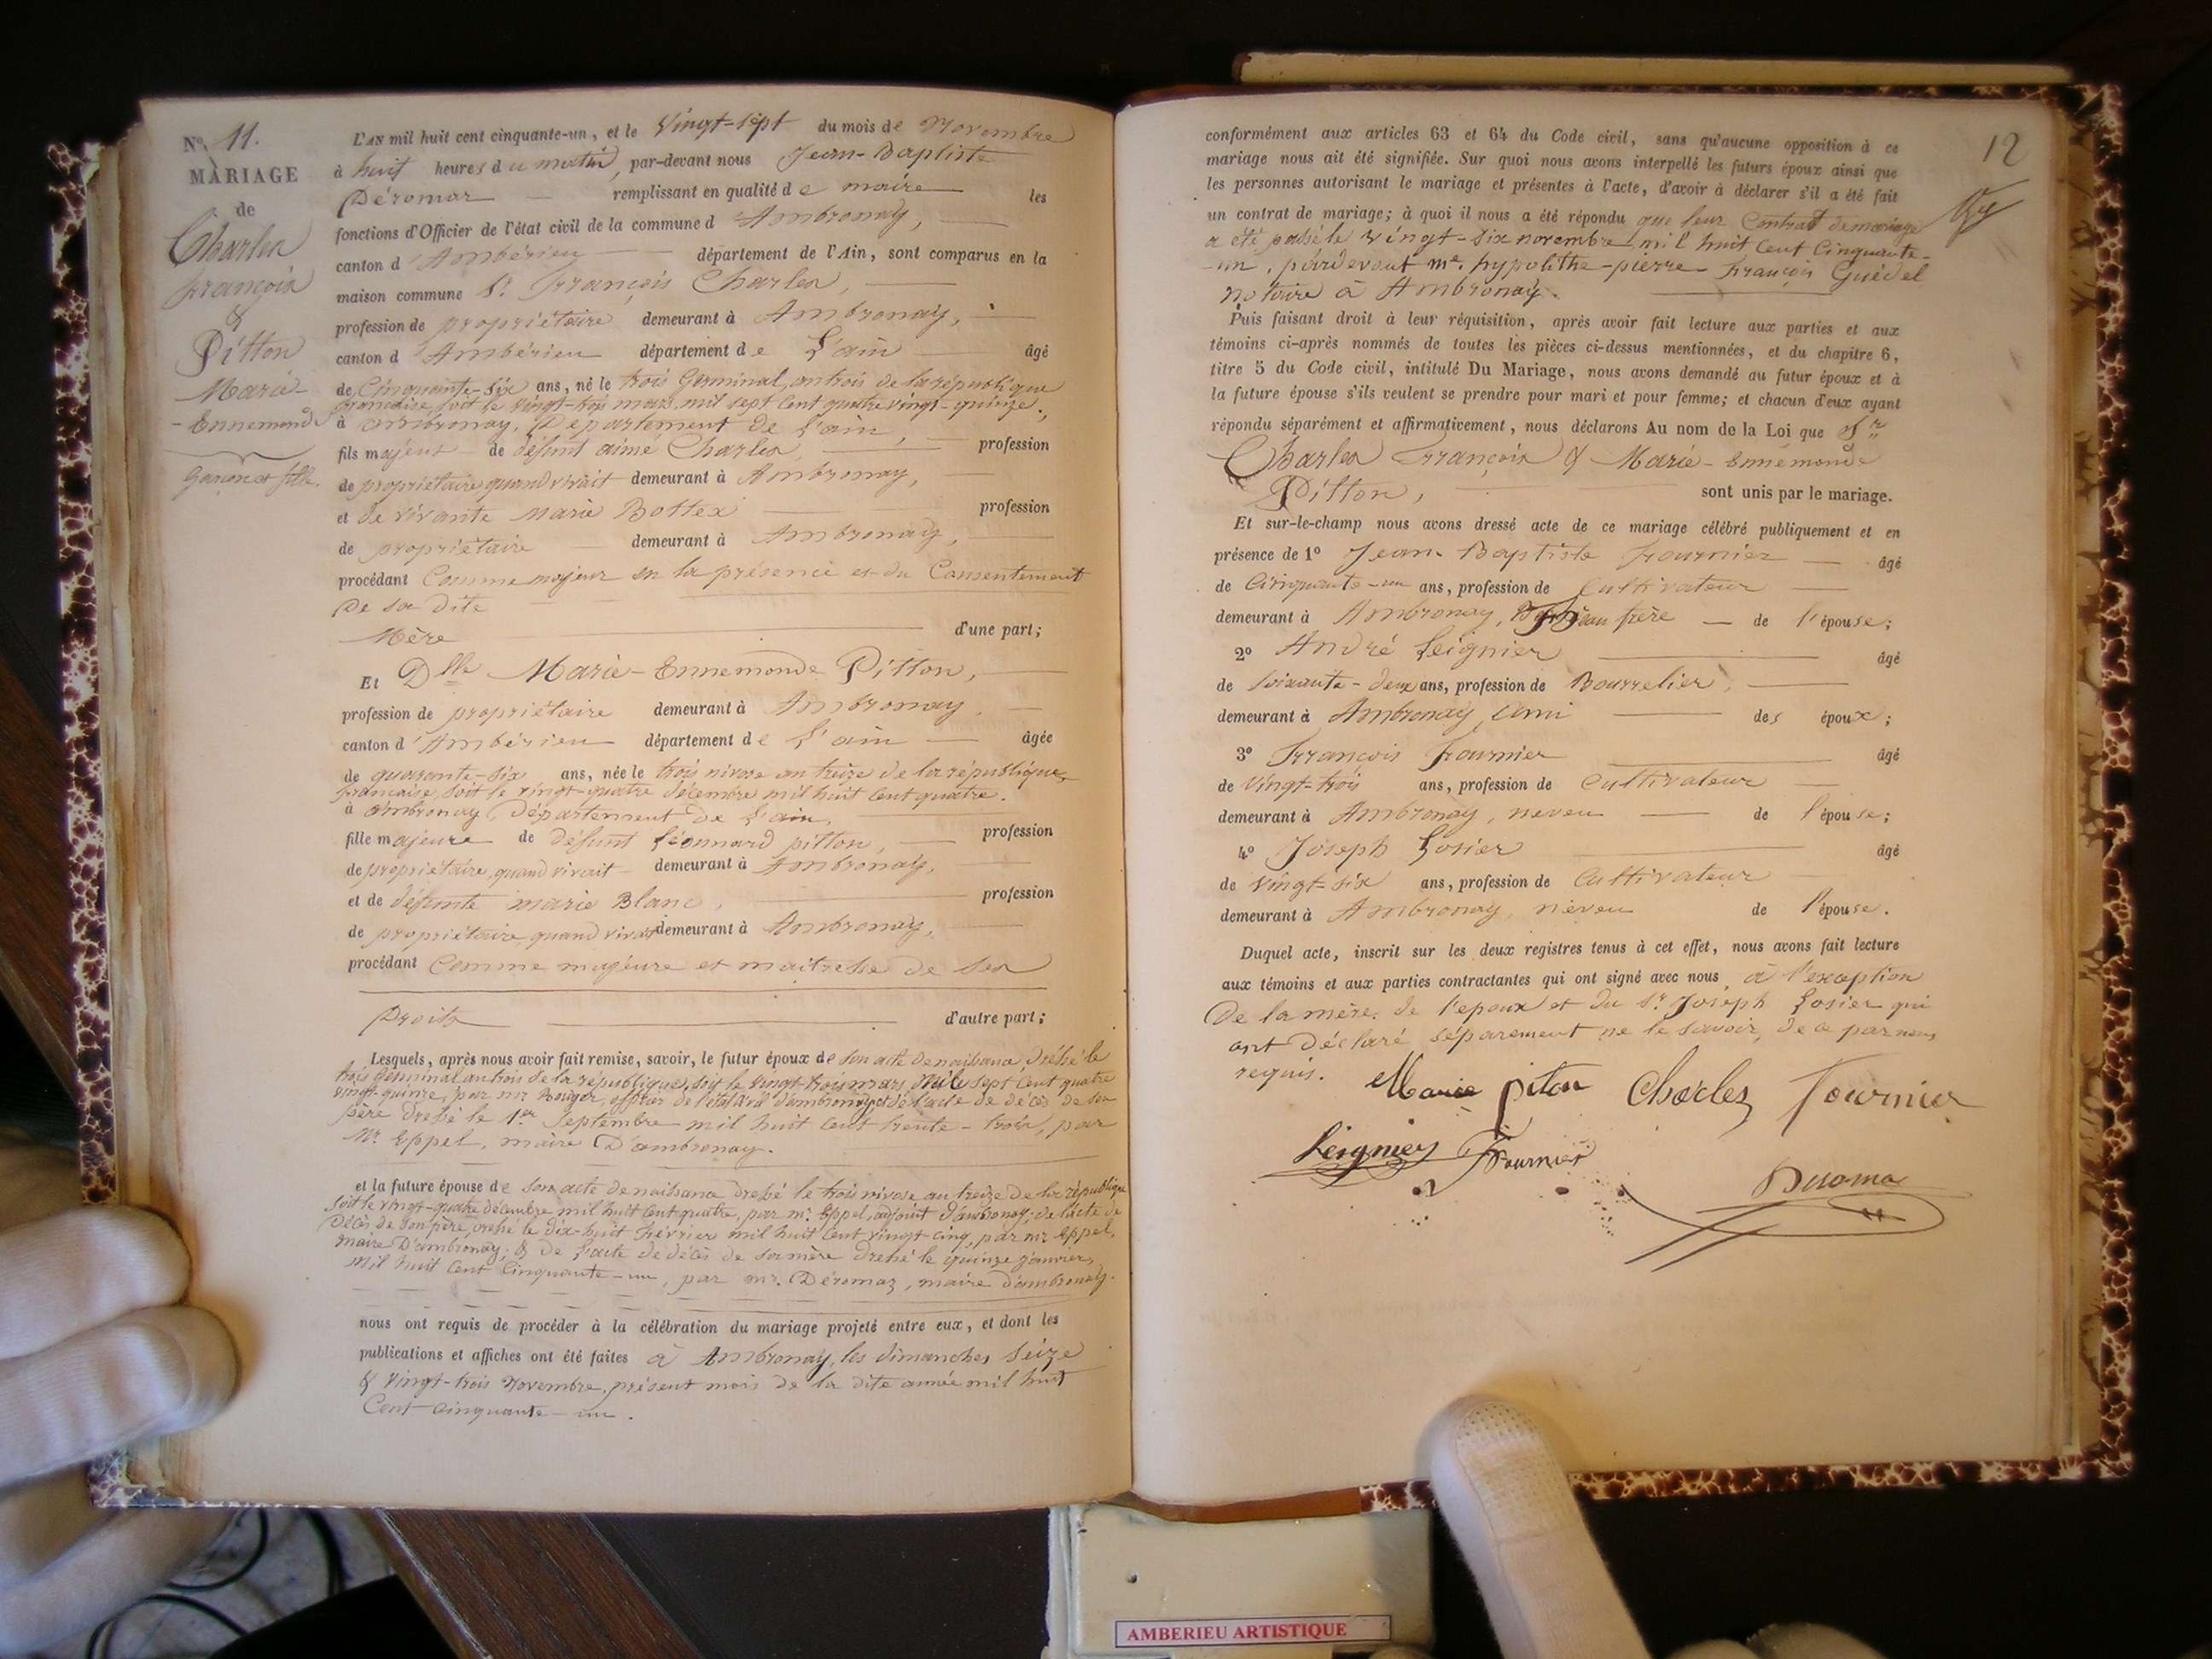 N° 11.
MARIAGE
de
Charles
François
&
Pitton
Marie-
-Ennemonde
Garçon et fille.
L'AN mil huit cent cinquante-un, et le Vingt-sept du mois de Novembre
à huit heures du matin, par-devant nous Jean-Baptiste
Déromas remplissant en qualité de maire les
fonctions d'Officier de l'état civil de la commune d'Ambronay,
canton d'Ambérieu département de l'Ain, sont comparus en la
maison commune Sr François Charles,
profession de propriétaire demeurant à Ambronay,
canton d'Ambérieu département de L'ain âgé
de Cinquante-six ans, né le trois Germinal an trois de la république
française, soit le vingt-trois mars mil sept cent quatre vingt-quinze,
à Ambronay, Département de L'ain,
fils majeur de défunt aimé Charles, profession
de propriétaire quand vivait demeurant à Ambronay,
et de vivante Marie Bottex profession
de propriétaire demeurant à Ambronay,
procédant Comme majeur en la présence et du Consentement
De sa dite
Mère d'une part;
Et Dlle Marie-Ennemonde Pitton,
profession de propriétaire demeurant à Ambronay,
canton d'Ambérieu département de L'ain âgée
de quarante-six ans, née le trois nivose an treize de la république
française, soit le vingt-quatre décembre mil huit cent quatre.
à Ambronay Département de L'ain,
fille majeure de défunt Léonnard pitton, profession
de propriétaire, quand vivait demeurant à Ambronay,
et de défunte marie Blanc, profession
de propriétaire quand vivait demeurant à Ambronay,
procédant Comme majeure et maitresse de ses
Droits d'autre part;
Lesquels, après nous avoir fait remise, savoir, le futur époux de son acte de naissance, dressé le
trois Germinal an trois de la république, soit le vingt-trois mars mil sept cent quatre
vingt-quinze, par mr Rouger, officier de l'état civil d'ambronay, et de l'acte de décès de son
père dressé le 1er Septembre mil huit cent trente-trois, par
Mr Eppel, maire D'ambronay.
et la future épouse de son acte de naissance dressé le trois nivose an treize de la république
soit le vingt-quatre décembre mil huit cent quatre, par mr Eppel, adjoint d'ambronay; de l'acte de
Décès de son père, dressé le dix-huit Février mil huit cent vingt-cinq, par mr Eppel,
maire D'ambronay; & de L'acte de décès de sa mère dressé le quinze janvier
mil huit Cent Cinquante-un, par mr. Déromaz, maire d'ambronay.
nous ont requis de procéder à la célébration du mariage projeté entre eux, et dont les
publications et affiches ont été faites à Ambronay, les dimanches Seize
& vingt-trois Novembre, présent mois de la dite année mil huit
Cent-cinquante-un.
12
conformément aux articles 63 et 64 du Code civil, sans qu'aucune opposition à ce
mariage nous ait été signifiée. Sur quoi nous avons interpellé les futurs époux ainsi que
les personnes autorisant le mariage et présentes à l'acte, d'avoir à déclarer s'il a été fait
un contrat de mariage; à quoi il nous a été répondu que leur Contrat de mariage
a été passé le vingt-six novembre mil huit Cent Cinquante-
-un, pardevant me. hypolithe-pierre François Guédel
notaire à Ambronay.
Puis faisant droit à leur réquisition, après avoir fait lecture aux parties et aux
témoins ci-après nommés de toutes les pièces ci-dessus mentionnées, et du chapitre 6,
titre 5 du Code civil, intitulé Du Mariage, nous avons demandé au futur époux et à
la future épouse s'ils veulent se prendre pour mari et pour femme; et chacun d'eux ayant
répondu séparément et affirmativement, nous déclarons Au nom de la Loi que Sr
Charles François & Marie-Ennemonde
Pitton, sont unis par le mariage.
Et sur-le-champ nous avons dressé acte de ce mariage célébré publiquement et en
présence de 1° Jean-Baptiste Fournier âgé
de Cinquante-un ans, profession de Cultivateur
demeurant à Ambronay, Beau frère de l'épouse;
2° André Leignier âgé
de soixante-deux ans, profession de Bourrelier,
demeurant à Ambronay, ami des époux;
3° François Fournier âgé
de vingt-trois ans, profession de Cultivateur
demeurant à Ambronay, neveu de l'épouse;
4° Joseph Losier âgé
de vingt-six ans, profession de Cultivateur
demeurant à Ambronay, neveu de l'épouse.
Duquel acte, inscrit sur les deux registres tenus à cet effet, nous avons fait lecture
aux témoins et aux parties contractantes qui ont signé avec nous, à l'exception
De la mère de l'epoux et du Sr Joseph Losier qui
ont Déclaré séparement ne le savoir, de ce par nous
requis.
Marie piton Charles Fournier
Leignier Fournier
Déromas
AMBERIEU ARTISTIQUE